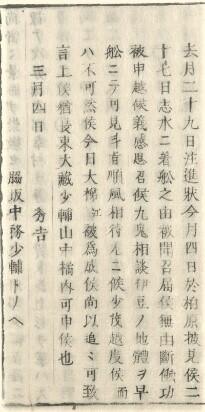 去月二十九日注進狀今月四日於柏原披見候二
十七日志水ニ着舩之由被聞召屆候無由斷術功
被申越候義感思召候九鬼相談伊豆ノ地體ヲ早
舩ニテ可見斗肯順風相待尤ニ候少茂越度候而
ハ不可然候今日大柿江被爲成候尚以追々可致
言上候猶長束大藏少輔山中橘内可申候也
三月四日　秀吉
脇坂中務少輔トノヘ